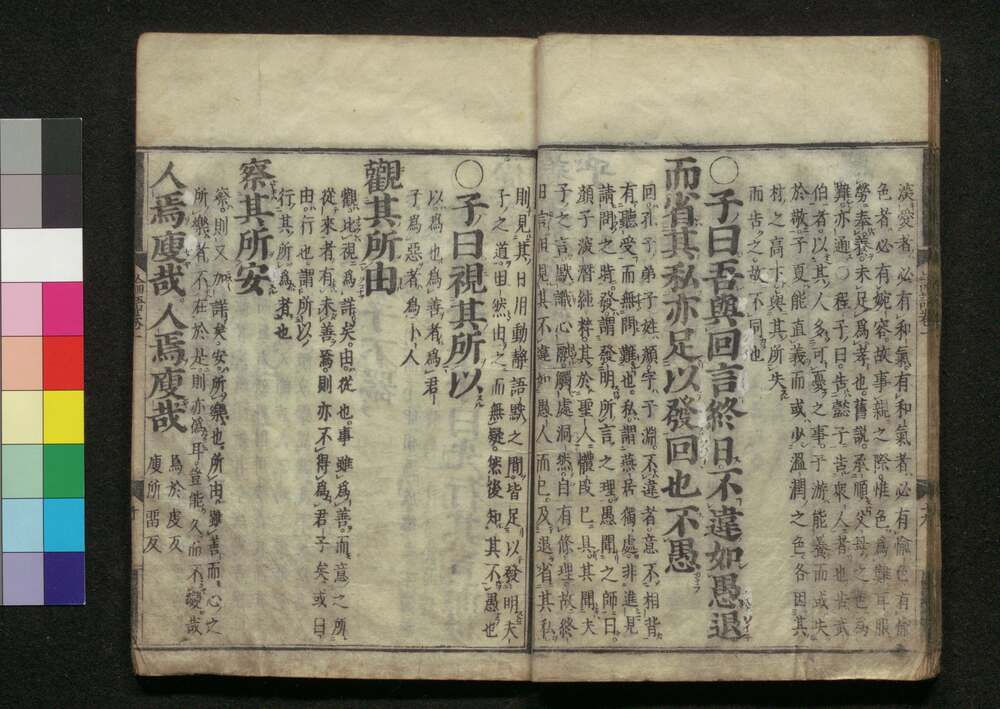 深愛者必有和氣有和氣者必有愉色有愉
色者必有婉容故事親之際惟色爲難耳服
勞奉養未足爲孝也舊說承順父母之色爲
難亦通○程子曰告懿子告衆人者也告武
伯者以其人多可憂之事子游能養而或失
於敬子夏能直義而或少溫潤之色各因其
材之高下與其所失
而告之故不同也
○子曰吾與回言終日不違如愚退
而省其私亦足以發回也不愚
回孔子弟子姓顏字子淵不違者意不相背
有聽受而無問難也私謂燕居獨處非進見
請問之時發謂發明所言之理愚聞之師曰
顏子深潛純粹其於聖人體段已具其聞夫
子之言默識心融觸處洞然自有條理故終
日言但見其不違如愚人而已及退省其私
則見其日用動靜語默之間皆足以發明夫
子之道坦然由之而無疑然後知其不愚也
○子曰視其所以
以爲也爲善者爲君
子爲惡者爲小人
觀其所由
觀比視爲詳矣由從也事雖爲善而意之所
從來者有未善焉則亦不得爲君子矣或曰
由行也謂所以
行其所爲者也
察其所安
察則又加詳矣安所樂也所由雖善而心之
所樂者不在於是則亦僞耳豈能久而不變哉
人焉廋哉人焉廋哉
焉於虔反
廋所留反